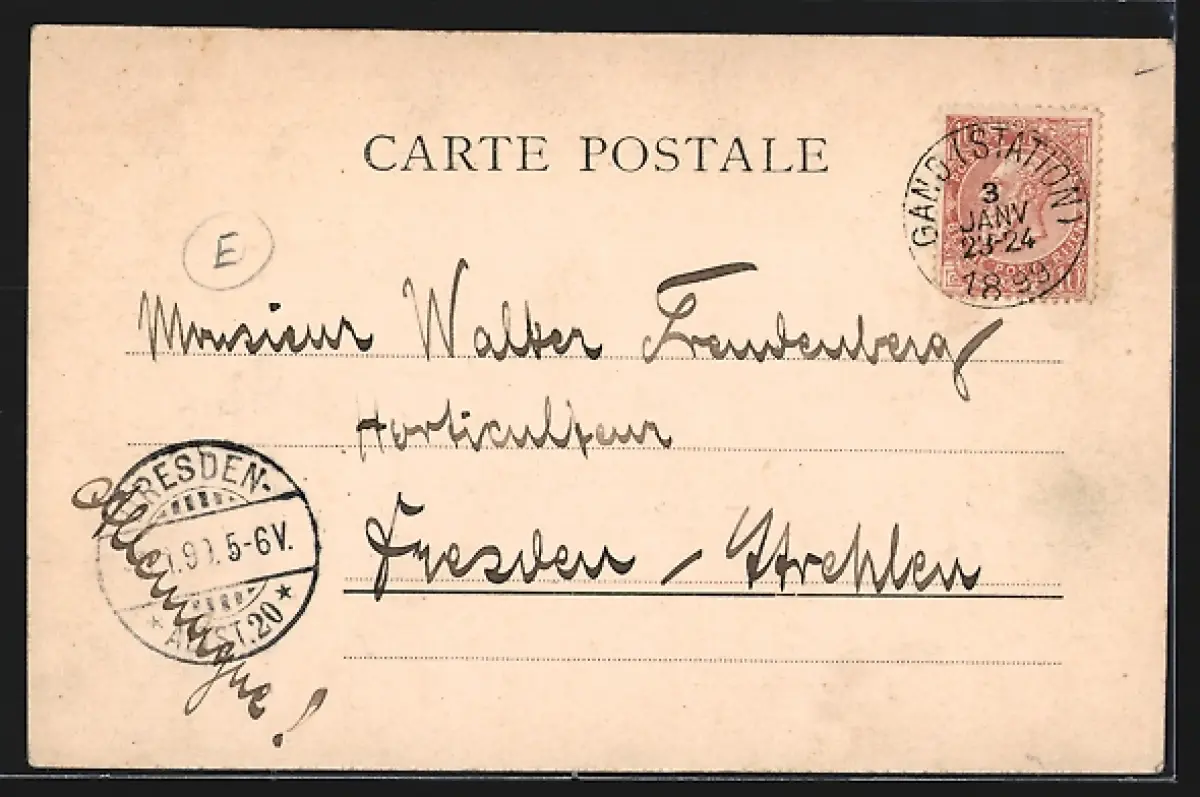 CARTE POSTALE
GAND (STATION)
3
JANV
23-24
1899
E
Monsieur Walter Freudenberg
Horticulteur
Dresden / Strehlen
DRESDEN-
5-6V.
* A. ST. 20 *
Allemagne!